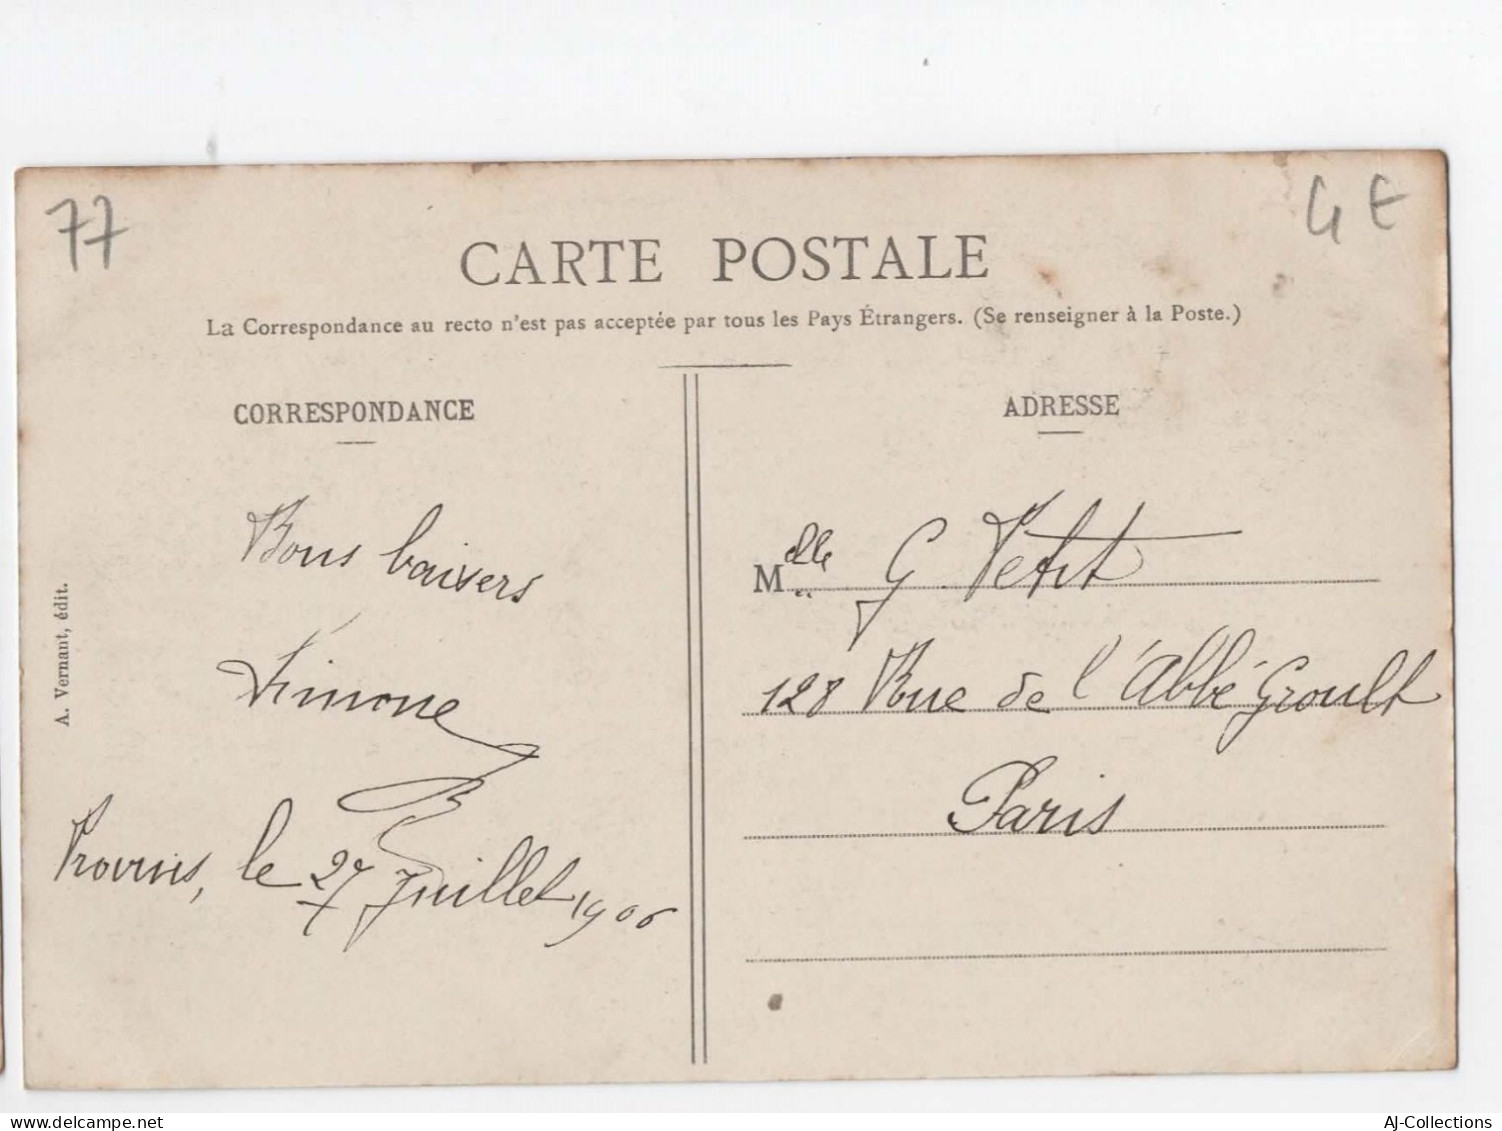 77
4 €
CARTE POSTALE
La Correspondance au recto n'est pas acceptée par tous les Pays Étrangers. (Se renseigner à la Poste.)
CORRESPONDANCE
Bons baisers
Simone
Provins, le 27 Juillet 1906
A. Vernant, édit.
ADRESSE
Melle G. Petit
128 Rue de l'Abbé Groult
Paris
delcampe.net
AJ-Collections